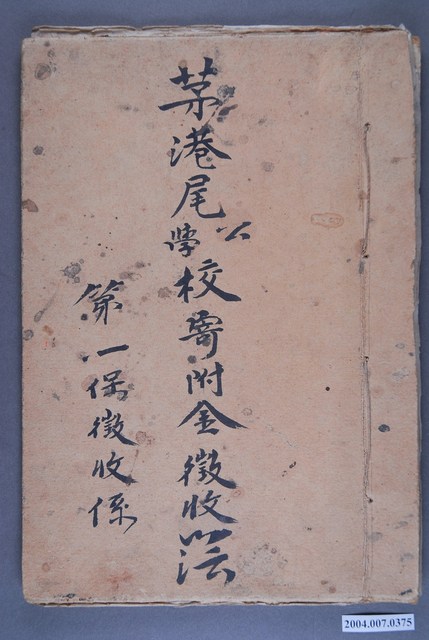 茅港尾公學校寄附金徵收簿
第一保徵收係
2004.007.0375